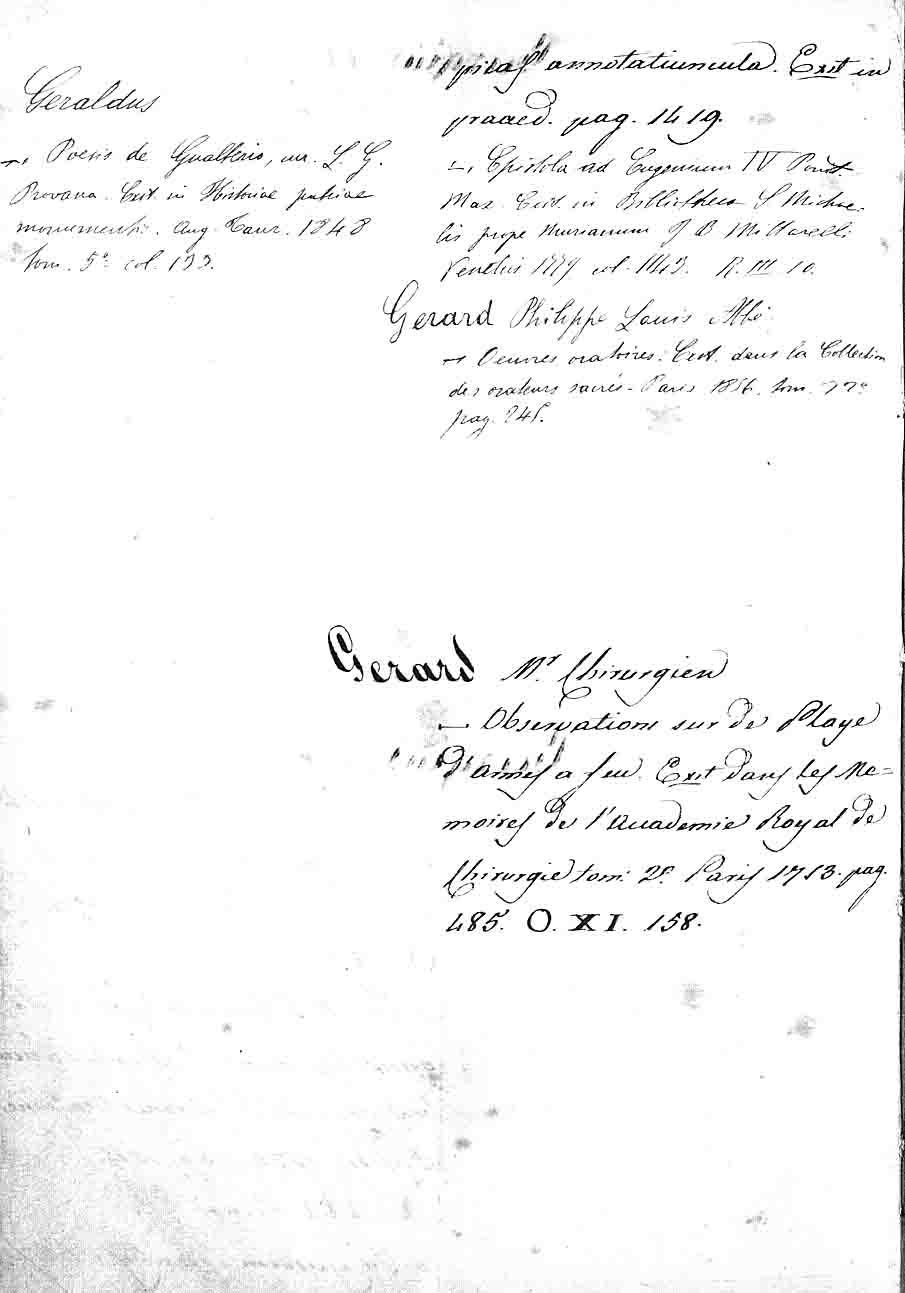 Geraldus
—, Poesis de Gualterio, cur. L. G.
Provana. Exit. in Historiae patriae
monumenti. Aug. Taur. 1848
tom. 5° col. 133.
annotatiuncula. Exit in
praaed. pag. 1419.
—, Epistola ad Eugenium IV Pont
Max. Exit. in Bibliotheca S Michae-
lis prope Murianum J B Mittarelli
Venetiis 1779 col. 1143. R. III 10.
Gerard Philippe Louis Abé
— Oeuvres oratoires. Exit. dans la Collection
des orateurs sacrés - Paris 1856. tom.
pag. 245.
Gerard Mr. Chirurgien
— Observations sur de Playe
d'armes a feu. Exit dans les Me=
moires de l'Academie Royal de
Chirurgie tom: 2e. Paris 1753. pag.
485. O. XI. 158.